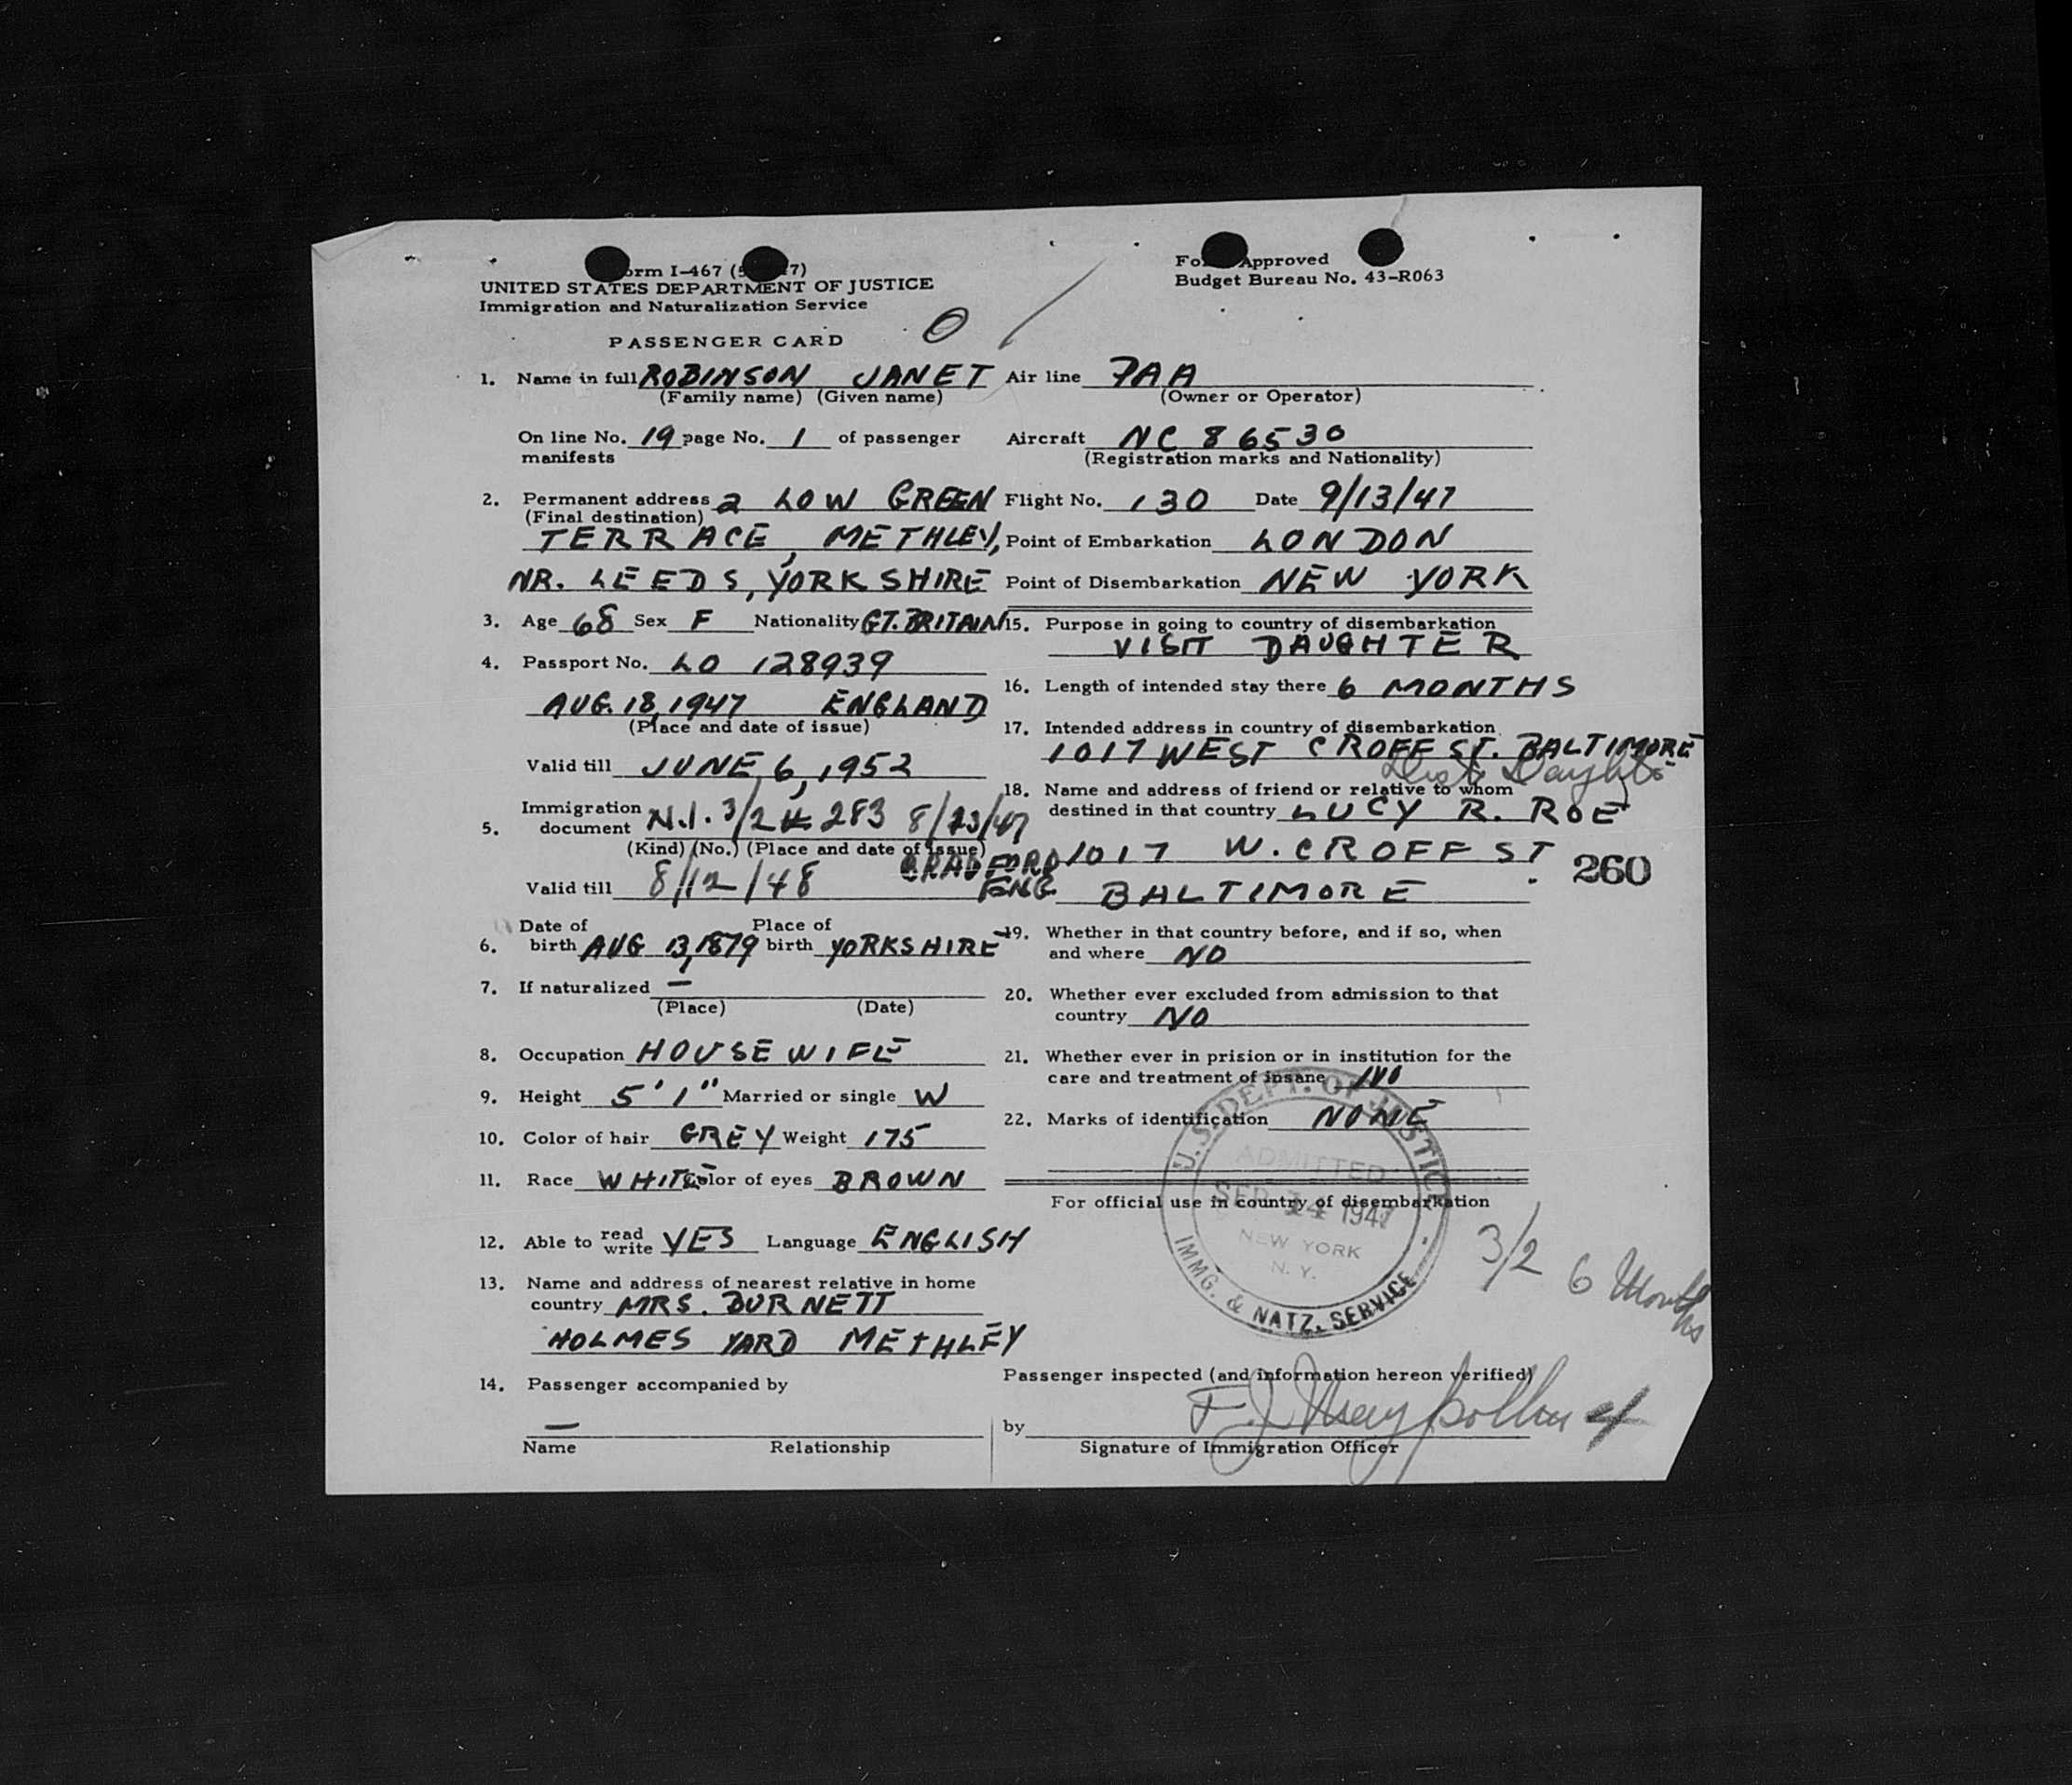 orm I-467 (5 7)
UNITED STATES DEPARTMENT OF JUSTICE
Immigration and Naturalization Service
PASSENGER CARD
Approved
Budget Bureau No. 43-R063
1. Name in full ROBINSON JANET
(Family name) (Given name)
On line No. 19 page No. 1 of passenger
manifests
2. Permanent address 2 LOW GREEN
(Final destination)
TERRACE, METHLEY,
NR. LEEDS, YORKSHIRE
3. Age 68 Sex F Nationality GT. BRITAIN
4. Passport No. LO 128939
AUG. 18, 1947 ENGLAND
(Place and date of issue)
Valid till JUNE 6, 1952
5. Immigration document N.I. 3/2 # 283 8/23/47
(Kind) (No.) (Place and date of issue)
BRADFORD
ENG
Valid till 8/12/48
6. Date of birth AUG 13, 1879 Place of birth YORKSHIRE
7. If naturalized —
(Place) (Date)
8. Occupation HOUSEWIFE
9. Height 5'1" Married or single W
10. Color of hair GREY Weight 175
11. Race WHITE Color of eyes BROWN
12. Able to read write YES Language ENGLISH
13. Name and address of nearest relative in home
country MRS. BURNETT
HOLMES YARD METHLEY
14. Passenger accompanied by
—
Name Relationship
Air line PAA
(Owner or Operator)
Aircraft NC 86530
(Registration marks and Nationality)
Flight No. 130 Date 9/13/47
Point of Embarkation LONDON
Point of Disembarkation NEW YORK
15. Purpose in going to country of disembarkation
VISIT DAUGHTER
16. Length of intended stay there 6 MONTHS
17. Intended address in country of disembarkation
1017 WEST CROFF ST. BALTIMORE
Daughter
18. Name and address of friend or relative to whom
destined in that country LUCY R. ROE
1017 W. CROFF ST
BALTIMORE
260
19. Whether in that country before, and if so, when
and where NO
20. Whether ever excluded from admission to that
country NO
21. Whether ever in prision or in institution for the
care and treatment of insane NO
22. Marks of identification NONE
For official use in country of disembarkation
U.S. DEPT. OF JUSTICE
ADMITTED
SEP 14 1947
NEW YORK
N. Y.
IMMG. & NATZ. SERVICE
3/2 6 Months
Passenger inspected (and information hereon verified)
by
4
Signature of Immigration Officer